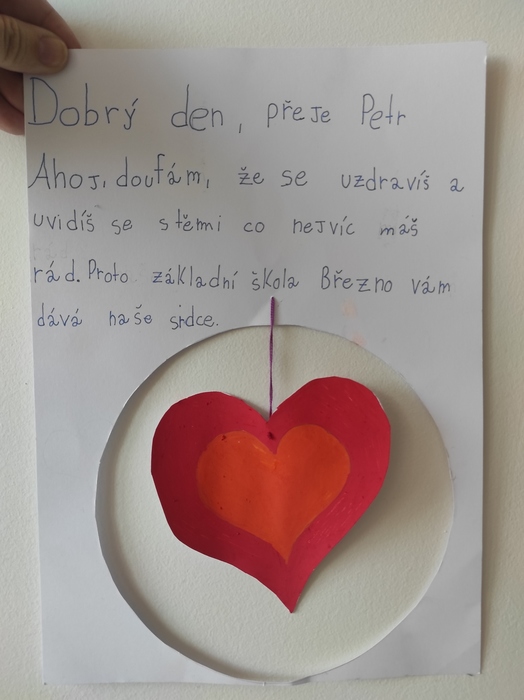 Dobrý den, přeje Petr
Ahoj, doufám, že se uzdravíš a
uvidíš se s těmi co nejvíc máš
rád. Proto základní škola Březno vám
dává naše srdce.